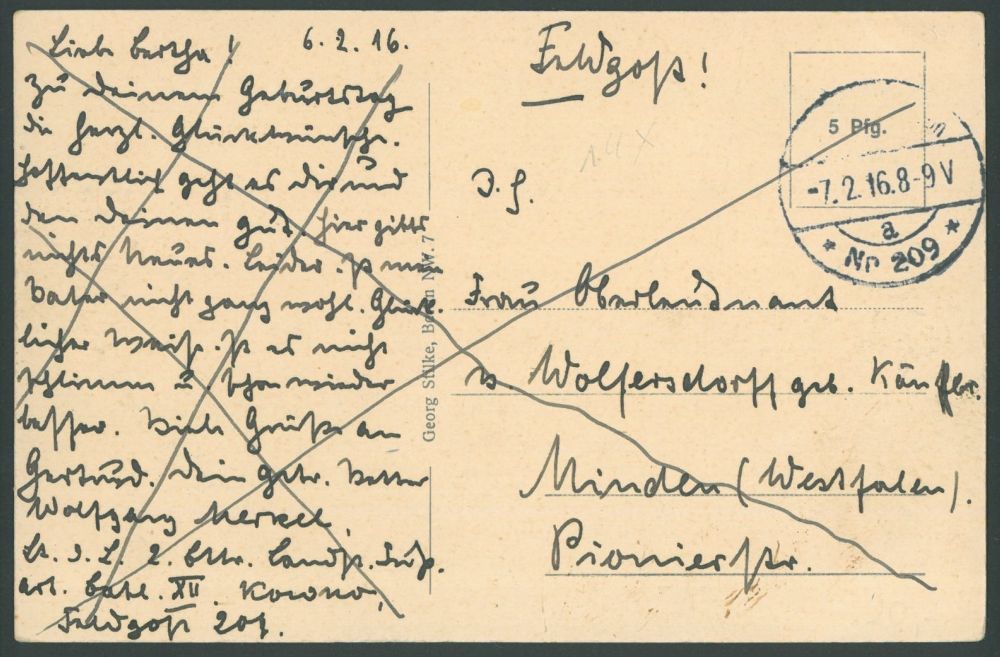 Liebe Bertha! 6.2.16.
Zu Deinem Geburtstag
die herzl. Glückwünsche.
Hoffentlich geht es Dir und
den Deinen gut. Hier gibts
nichts Neues. Leider ist mein
Vater nicht ganz wohl. Glück-
licher Weise ist es nicht
schlimm u. schon wieder
besser. Viele Grüße an
Gertrud. Dein getr. Vetter
Wolfgang Merkel,
Lt. d. L. 2. Bttr. Landst. Fuß-
art. Batl. XII Kowno,
Feldpost 209.
Georg Stilke, Berlin NW. 7
Feldpost!
5 Pfg.
-7.2.16.8-9V
a
* Nr 209 *
Frau Oberleudnant
v. Wolfersdorff geb.
Minden (Westfalen).
Pionierstr.